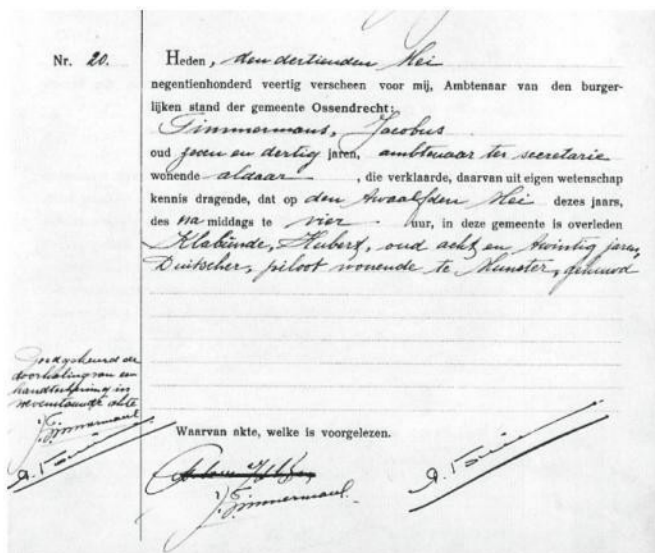 Nr. 20.
Heden, den dertienden Mei
negentienhonderd veertig verscheen voor mij, Ambtenaar van den burger-
lijken stand der gemeente Ossendrecht:
Timmermans, Jacobus
oud zeven en dertig jaren, ambtenaar ter secretarie
wonende aldaar , die verklaarde, daarvan uit eigen wetenschap
kennis dragende, dat op den twaalfden Mei dezes jaars,
des na middags te vier uur, in deze gemeente is overleden
Klabunde, Hubert, oud acht en twintig jaren,
Duitscher, piloot wonende te Munster, gehuwd
Goedgekeurd de
doorhaling van een
handteekening in
nevenstaande akte
J. Timmermans
Waarvan akte, welke is voorgelezen.
J. Timmermans.